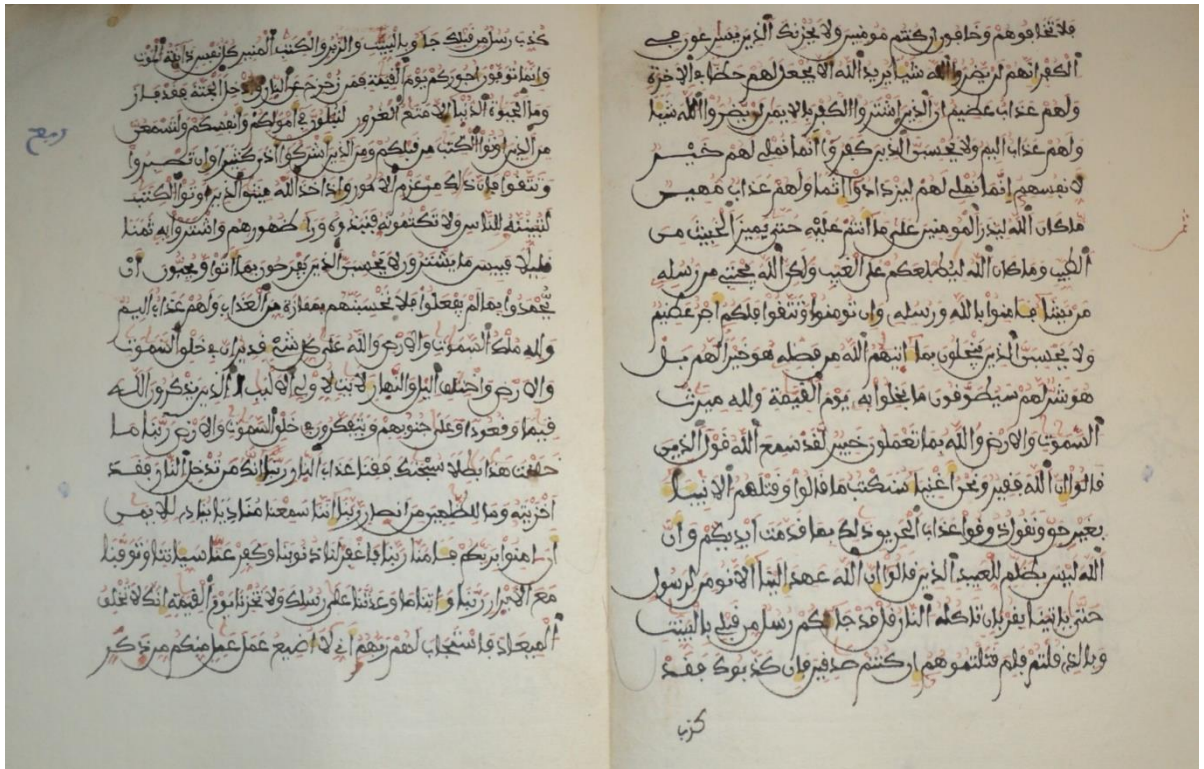 فلا تخافوهم وخافون ان كنتم مومنين ولا يحزنك الذين يسرعون في
الكفر انهم لن يضروا الله شيا يريد الله الا يجعل لهم حظا في الاخرة
ولهم عذاب عظيم ان الذين اشتروا الكفر بالايمن لن يضروا الله شيا
ولهم عذاب اليم ولا يحسبن الذين كفروا انما نملي لهم خير
لانفسهم انما نملي لهم ليزدادوا اثما ولهم عذاب مهين
ما كان الله ليذر المومنين على ما انتم عليه حتى يميز الخبيث من
الطيب وما كان الله ليطلعكم على الغيب ولكن الله يجتبي من رسله
من يشا فامنوا بالله ورسله وان تومنوا وتتقوا فلكم اجر عظيم
ولا يحسبن الذين يبخلون بما اتيهم الله من فضله هو خيرا لهم بل
هو شر لهم سيطوقون ما بخلوا به يوم القيمة ولله ميرث
السموت والارض والله بما تعملون خبير لقد سمع الله قول الذين
قالوا ان الله فقير ونحن اغنيا سنكتب ما قالوا وقتلهم الانبيا
بغير حق ونقول ذوقوا عذاب الحريق ذلك بما قدمت ايديكم وان
الله ليس بظلم للعبيد الذين قالوا ان الله عهد الينا الا نومن لرسول
حتى ياتينا بقربان تاكله النار قل قد جاكم رسل من قبلي بالبينت
وبالذي قلتم فلم قتلتموهم ان كنتم صدقين فان كذبوك فقد
كذب
كذب رسل من قبلك جاو بالبينت والزبر والكتب المنير كل نفس ذايقة الموت
وانما توفون اجوركم يوم القيمة فمن زحزح عن النار وادخل الجنة فقد فاز
وما الحيوة الدنيا الا متع الغرور لتبلون في امولكم وانفسكم ولتسمعن
من الذين اوتوا الكتب من قبلكم ومن الذين اشركوا اذى كثيرا وان تصبروا
وتتقوا فان ذلك من عزم الامور واذ اخذ الله ميثق الذين اوتوا الكتب
لتبيننه للناس ولا تكتمونه فنبذوه ورا ظهورهم واشتروا به ثمنا
قليلا فبيس ما يشترون لا يحسبن الذين يفرحون بما اتوا ويحبون ان
يحمدوا بما لم يفعلوا فلا تحسبنهم بمفازة من العذاب ولهم عذاب اليم
ولله ملك السموت والارض والله على كل شيء قدير ان في خلق السموت
والارض واختلف اليل والنهار لايت لاولي الالبب الذين يذكرون الله
قيما وقعودا وعلى جنوبهم ويتفكرون في خلق السموت والارض ربنا ما
خلقت هذا بطلا سبحنك فقنا عذاب النار ربنا انك من تدخل النار فقد
اخزيته وما للظلمين من انصار ربنا اننا سمعنا مناديا ينادي للايمن
ان امنوا بربكم فامنا ربنا فاغفر لنا ذنوبنا وكفر عنا سياتنا وتوفنا
مع الابرار ربنا واتنا ما وعدتنا على رسلك ولا تخزنا يوم القيمة انك لا تخلف
الميعاد فاستجاب لهم ربهم اني لا اضيع عمل عمل منكم من ذكر
ربع
ثمن